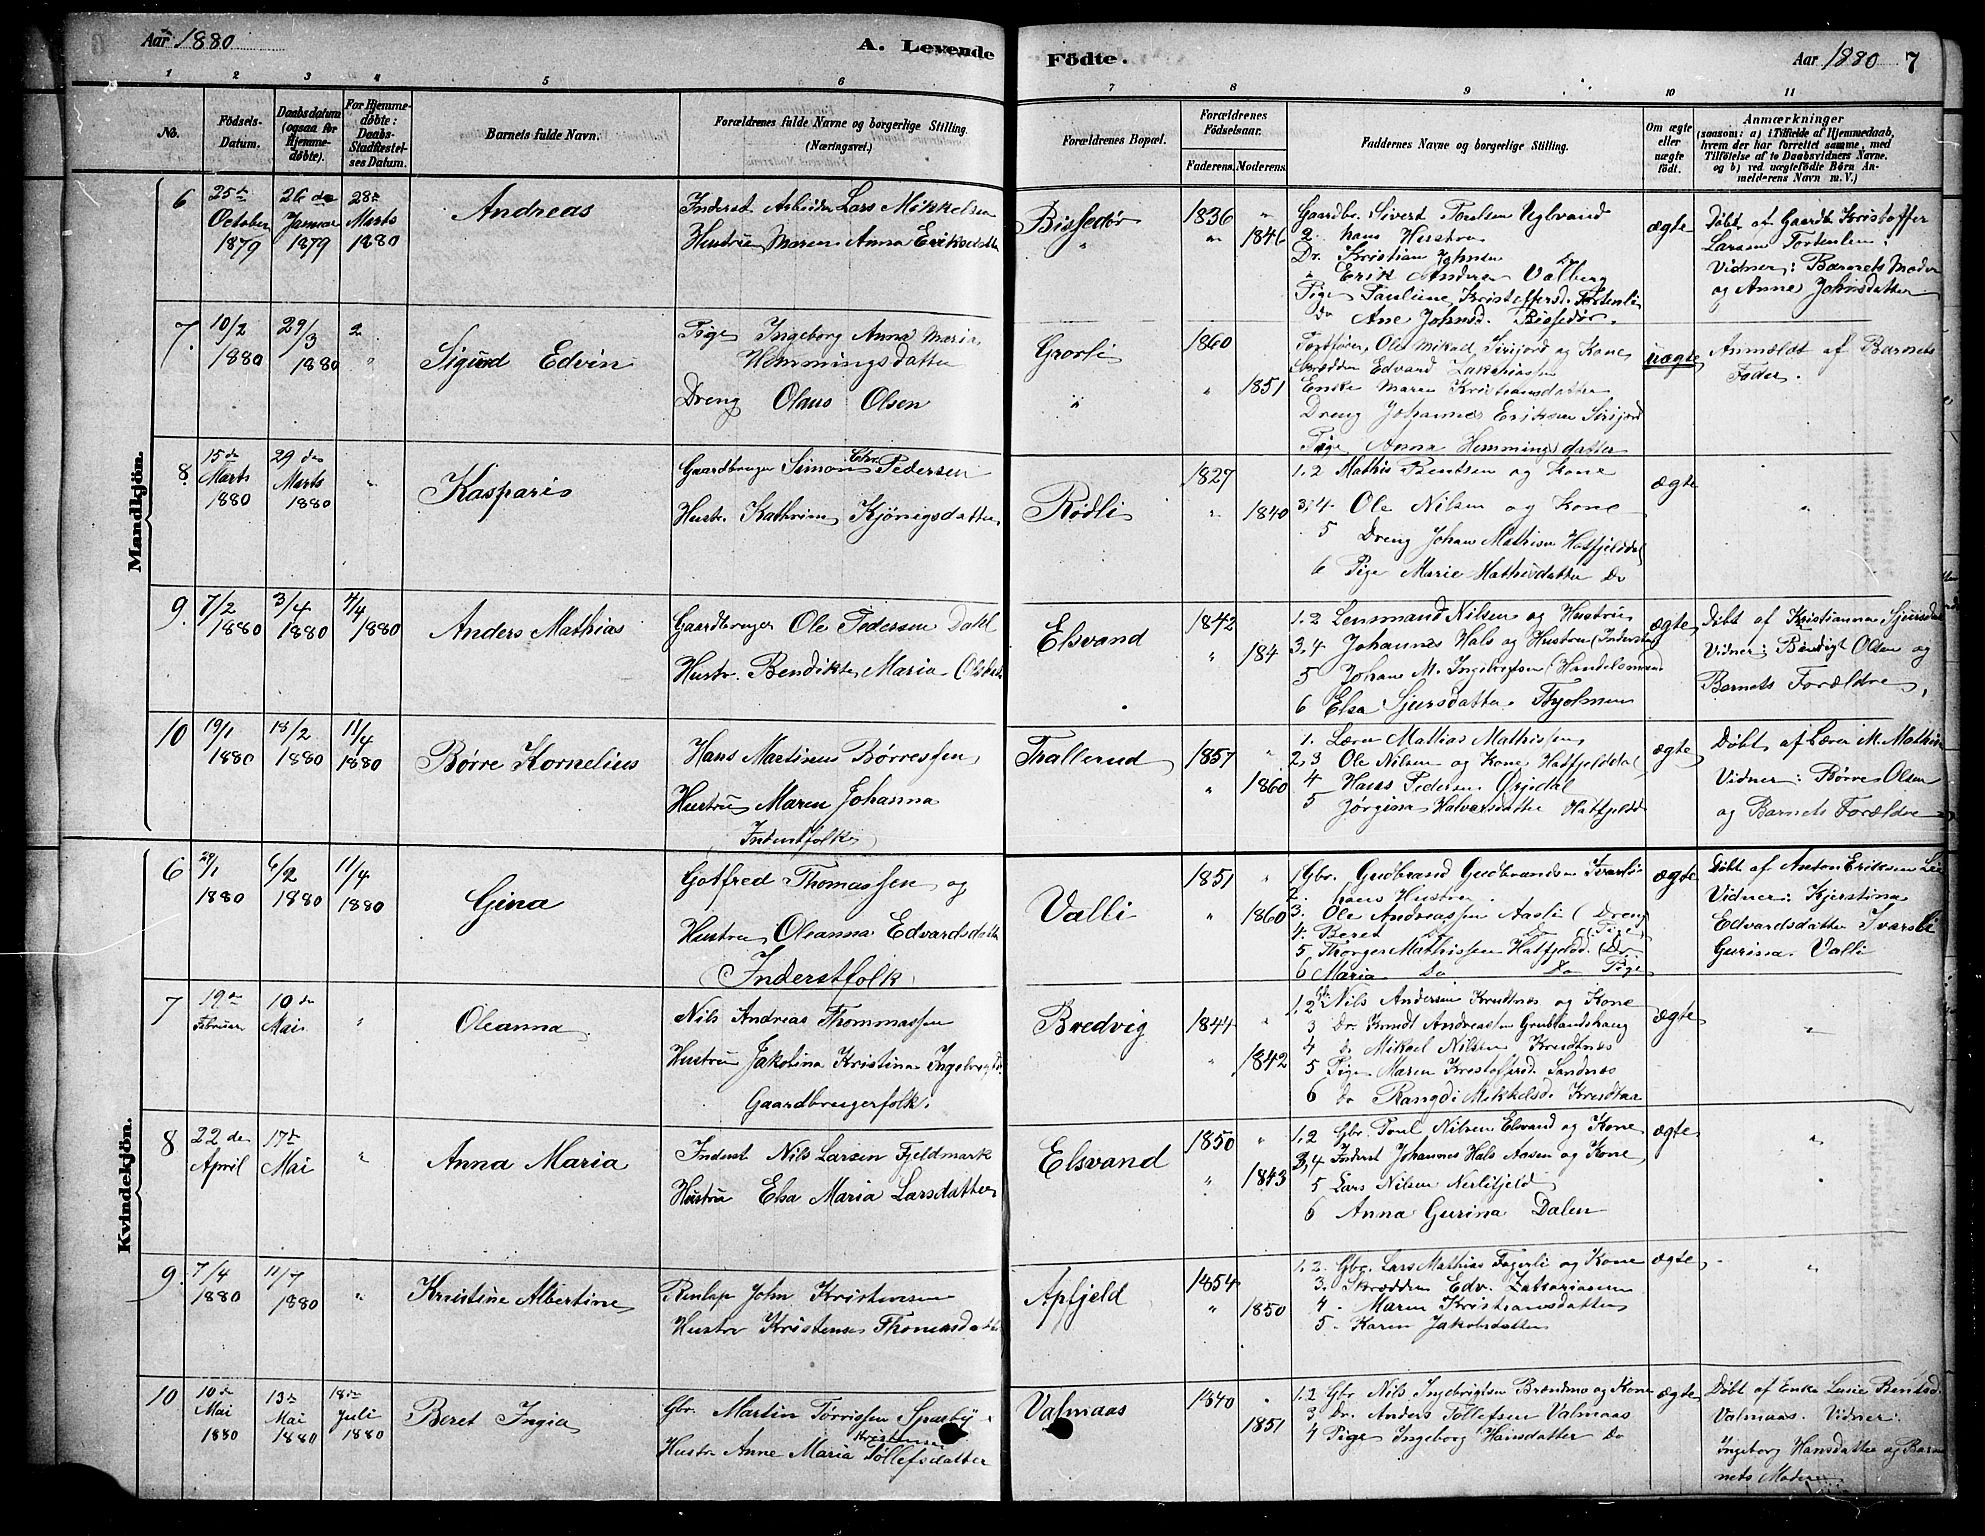 Aar 1880
A. Levende
Födte.
Aar 1880 7
1 2 3 4 5 6 7 8 9 10 11
No.
Födsels-
Datum.
Daabsdatum
(ogsaa for
Hjemme-
döbte).
For Hjemme-
döbte:
Daabs-
Stadfæstel-
ses Datum.
Barnets fulde Navn.
Forældrenes fulde Navne og borgerlige Stilling.
(Næringsvei.)
Forældrenes Bopæl.
Forældrenes
Födselsaar.
Faderens. Moderens.
Faddernes Navne og borgerlige Stilling.
Om ægte
eller
uægte
födt.
Anmærkninger
(saasom: a) i Tilfælde af Hjemmedaab,
hvem der har forrettet samme, med
Tilföielse af to Daabsvidners Navne.
og b) ved uægtefödte Börn An-
melderens Navn m. V.)
Mandkjön.
6
25de
October
1879
26de
Januar
1879
28de
Marts
1880
Andreas
Inderst Arbeider Lars Mikkelsen
Hustru Maren Anna Eriksdatter
Bissedør
1836
1846
Gaardbr. Sivert Toulsen Uglvand
2. hans Hustru
Dr. Kristian Johnsen Do
" Erik Andersen Valberg
Pige Pauline Kristoffersd. Fortenli
do Ane Johnsd. Bissedør
ægte
Døbt af Gaardb Kristoffer
Larsen Fortenlien:
Vidner: Barnets Moder
og Anne Johnsdatter
7.
10/2
1880
29/3
1880
Sigurd Edvin
Pige Ingeborg Anna Maria
Hemmingsdatter
Dreng Olaus Olsen
Grovli
1860
1851
Ole Mikal Sirijord og Kone
Skrædder Edvard Zakariassen
Enke Maren Kristiansdatter
Dreng Johannes Eriksen Sirijord
Pige Anna Hemmingsdatter
uægte
Anmældt af Barnets
Fader.
8.
15de
Marts
1880
29de
Marts
1880
"
Kasparis
Gaardbruger Simon Chr. Pedersen
Hustr. Kathrine Kjönigsdatter
Rødli
1827
1840
1.2 Mathis Bentsen og Kone
3,4 Ole Nilsen og Kone
5 Dreng Johan Mathisen Hatfjelddal
6 Pige Marie Mathisdatter Do
ægte
"
9.
7/2
1880
3/4
1880
4/4
1880
Anders Mathias
Gaardbruger Ole Pedersen Dahl
Hustr. Bendikte Maria
Elsvand
1842
184
1.2 Lensmand Nilsen og Hustru
3,4 Johannes Hals og Hustru (Inderster
5 Johan M. Ingebrigtsen (Handelsmand
6 Elsa Sjursdatter
ægte
Døbt af Kristianna Sjursdat
Vidner: Bendigt Olsen og
Barnets Forældre,
10
19/1
1880
18/2
1880
11/4
1880
Børre Kornelius
Hans Martinus Børressen
Hustru Maren Johanna
Inderstfolk
Trallerud
1857
1860
1. Lærer Mathias Mathissen
2,3 Ole Nilsen og Kone Hatfjelddal
4 Hans Pedersen
5 Jørgine Halvorsdatter Hatfjeldd
ægte
Døbt af Lærer M. Mathis
Vidner: Børre Olsen
og Barnets Forældre
Kvindekjön.
6
29/1
1880
6/2
1880
11/4
1880
Gina
Gotfred Thomassen og
Hustru Oleanna Edvardsdatter
(Inderstfolk)
Valli
1851
1860
1 Gbr. Gudbrand Gudbrandsen
2. hans Hustru
3. Ole Andreassen Aasli (Dreng
4. Beret Do Do (Pige)
5. Thorger Mathissen Hatfjeldd. (Dr
6 Maria Do Do Pige
ægte
Døbt af Anton Eriksen
Vidner: Kjerstina
Edvardsdatter Ivarsli
Gurina Valli
7
19de
Februar
10de
Mai
"
Oleanna
Nils Andreas Thommassen
Hustru Jakobina Kristina Ingebrigtsd.
Gaardbrugerfolk.
Bredvig
1844
1842
1.2 Gbr Nils Andersen Krudtnæs og Kone
3 Dr. Knudt Andreassen Grublandshaug
4 do Mikael Nilsen Krudtnæs
5 Pige Maren Kristoffersd. Sandnæs
6 do Rangdi Mikkelsd.
ægte
"
8
22de
April
17de
Mai
"
Anna Maria
Inderst Nils Larsen Fjeldmark
Hustru Elsa Maria Larsdatter
Elsvand
1850
1843
1.2 Gbr. Poul Nilsen Elsvand og Kone
3,4 Inderst Johannes Hals Aasen og Kone
5 Lars Nilsen Nerlifjeld
6 Anna Gurina Dalen
ægte
"
9.
7/4
1880
11/7
1880
"
Kristine Albertine
John Kristensen
Hustru Kristense Thomasdatter
Apfjeld
1854
1850
1.2. Gbr. Lars Mathias Fagerli og Kone
3. Skrædder Edv. Zakariasen
4. Maren Kristiansdatter
5. Karen Jakobsdatter
ægte
"
10
10de
Mai
1880
13de
Mai
1880
18de
Juli
1880
Beret Ingia
Gbr. Martin Tørrissen
Hustr Anne Maria Kristense Tollefsdatter
Valmaas
1840
1851
1.2 Gbr Nils Ingebrigtsen Brændmo og Kone
3 Dr. Anders Tollefsen Valmaas
4 Pige Ingeborg Hansdatter Do
ægte
Døbt af Enke Lusie Bentsd.
Valmaas. Vidner:
Ingeborg Hansdatter og Bar-
nets Moder